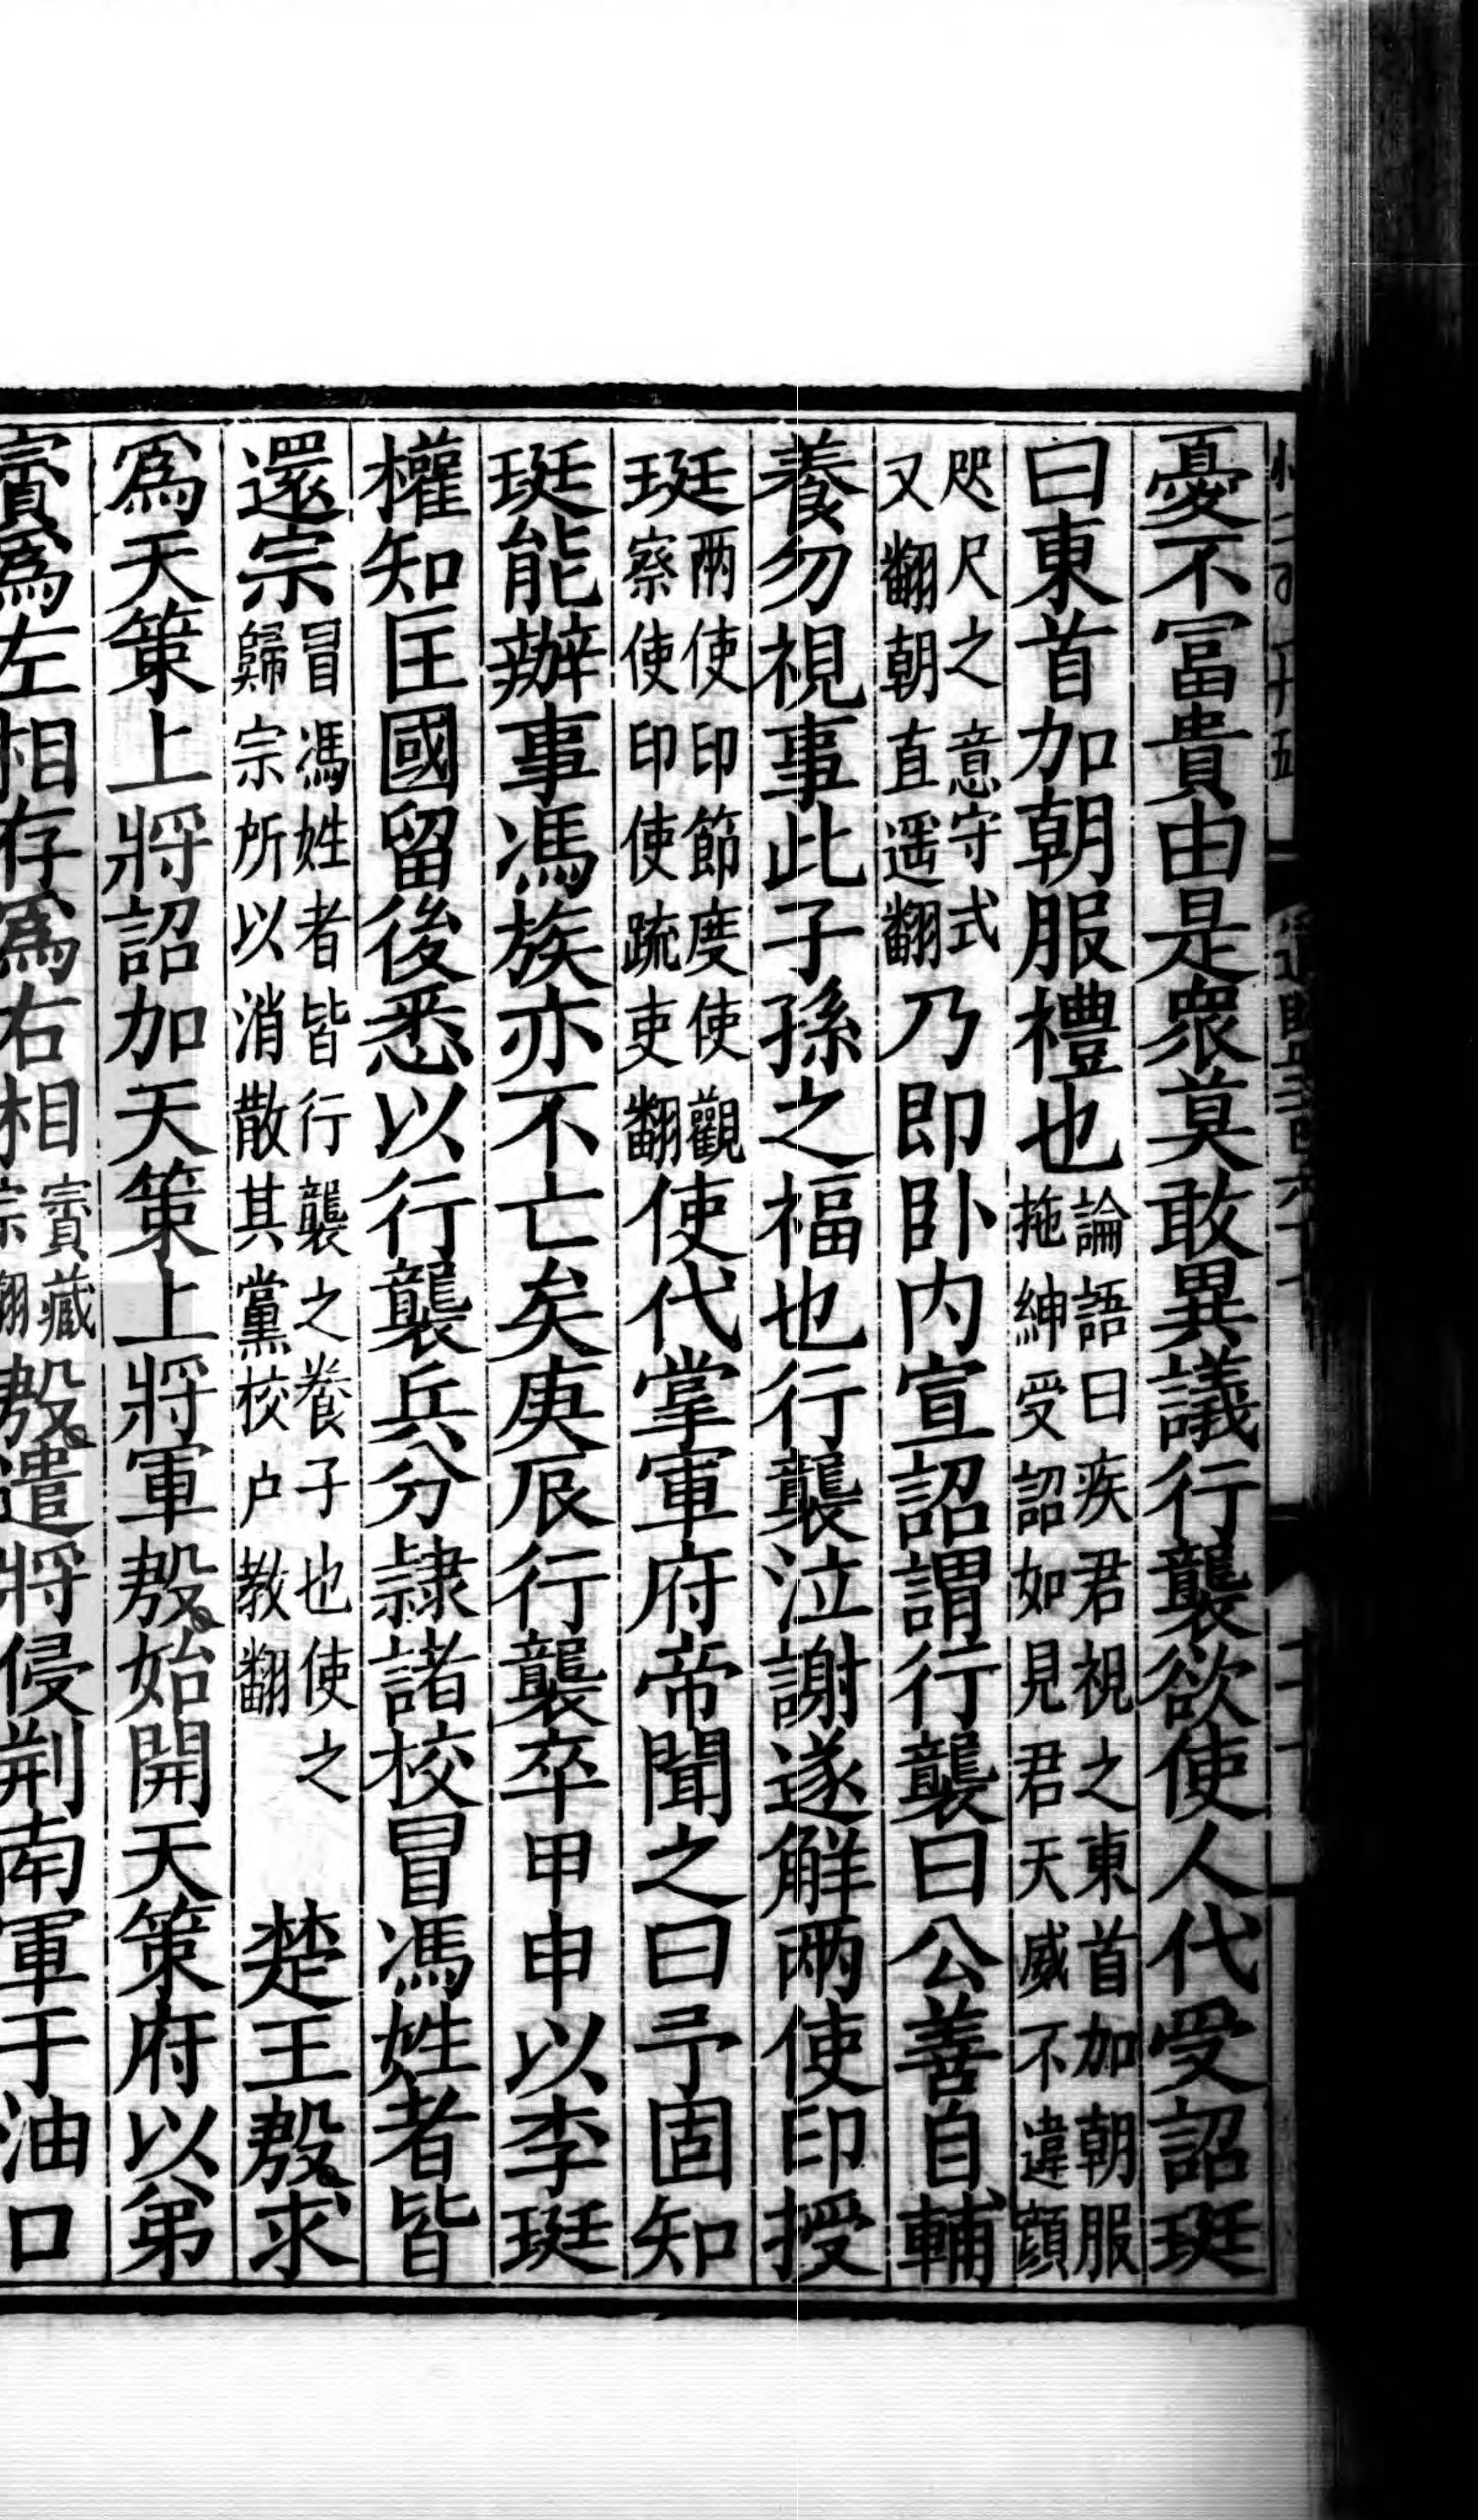 憂不富貴由是衆莫敢異議行襲欲使人代受詔珽
曰東首加朝服禮也論語曰疾君視之東首加朝服
拖紳受詔如見君天威不違顔
咫尺之意守式
又翻朝直遥翻乃即卧内宣詔謂行襲曰公善自輔
養勿視事此子孫之福也行襲泣謝遂解兩使印授
珽兩使印節度使觀
察使印使疏吏翻使代掌軍府帝聞之曰予固知
珽能辦事馮族亦不亡矣庚辰行襲卒甲申以李珽
權知匡國留後悉以行襲兵分隷諸校冒馮姓者皆
還宗冒馮姓者皆行襲之養子也使之
歸宗所以消散其黨校户教翻楚王殷求
爲天策上將詔加天策上將軍殷始開天策府以弟
賨爲左相存爲右相賨藏
宗翻殷遣將侵荆南軍于油口